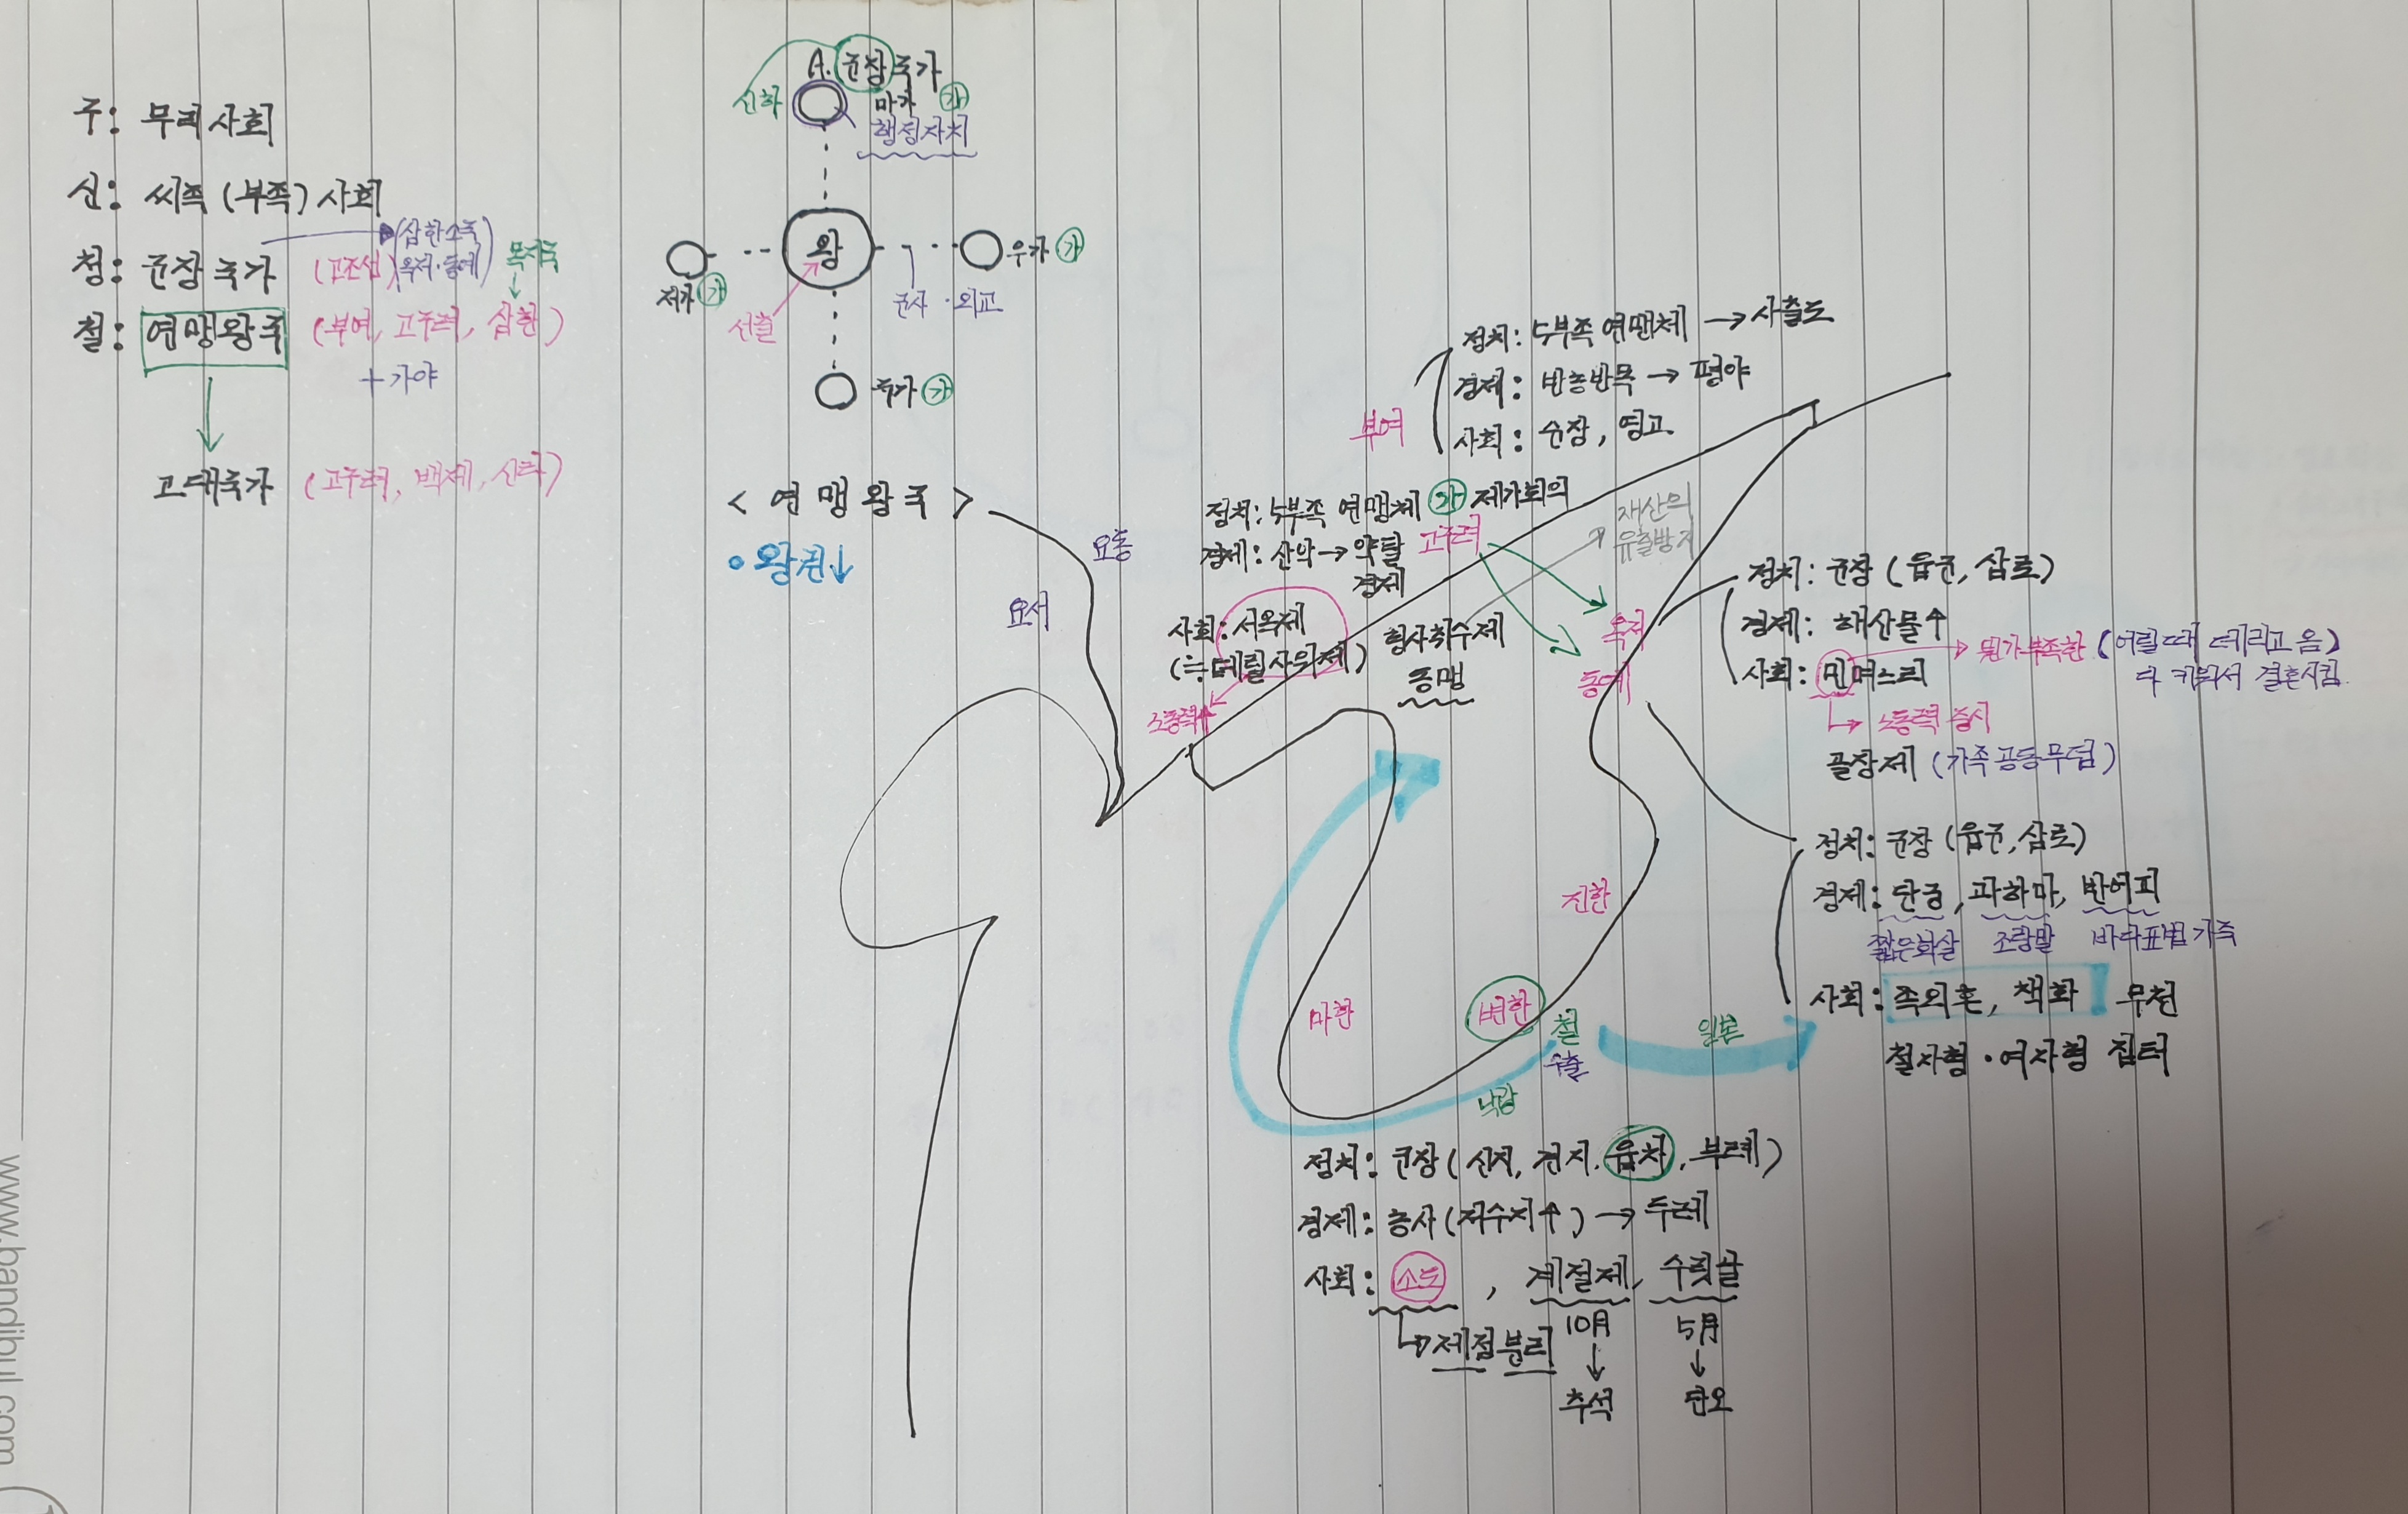 구: 무리사회
신: 씨족 (부족) 사회
청: 군장국가 (고조선) (삼한소국 옥저·동예) 목지국
철: 연맹왕국 (부여, 고구려, 삼한)
+ 가야
고대국가 (고구려, 백제, 신라)
A. 군장국가
신하
마가 가
행정자치
왕
저가 가
우가 가
선출
군사·외교
구가 가
< 연맹왕국 >
• 왕권↓
요동
요서
부여
정치: 5부족 연맹체 → 사출도
경제: 반농반목 → 평야
사회: 순장, 영고
정치: 5부족 연맹체 가 제가회의
경제: 산악→약탈 경제
고구려
사회: 서옥제
(≒데릴사위제)
노동력↑
형사취수제
동맹
재산의
유출방지
옥저
동예
정치: 군장 (읍군, 삼로)
경제: 해산물↑
사회: 민며느리 → 뭔가 부족한 (어릴때 데리고 옴)
다 키워서 결혼시킴.
→ 노동력 중시
골장제 (가족공동무덤)
정치: 군장 (읍군, 삼로)
경제: 단궁, 과하마, 반어피
짧은화살 조랑말 바다표범가죽
사회: 족외혼, 책화 무천
철자형·여자형 집터
진한
마한
변한
철
수출
일본
낙랑
정치: 군장 (신지, 견지, 읍차, 부례)
경제: 농사 (저수지↑) → 두레
사회: 소도, 계절제, 수릿날
→ 제정분리
10月
↓
추석
5月
↓
단오
www.bandibul.com